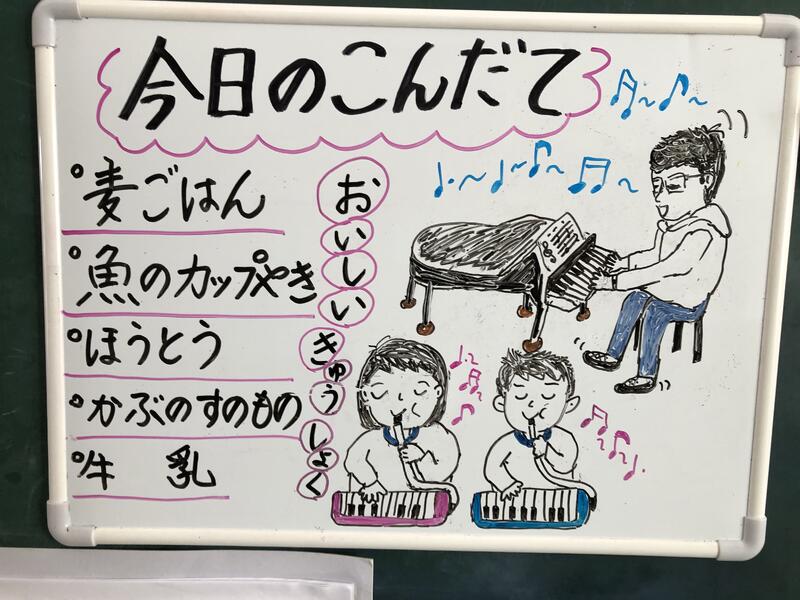 今日のこんだて
麦ごはん
魚のカップやき
ほうとう
かぶのすのもの
牛 乳
おいしい
きゅうしょく